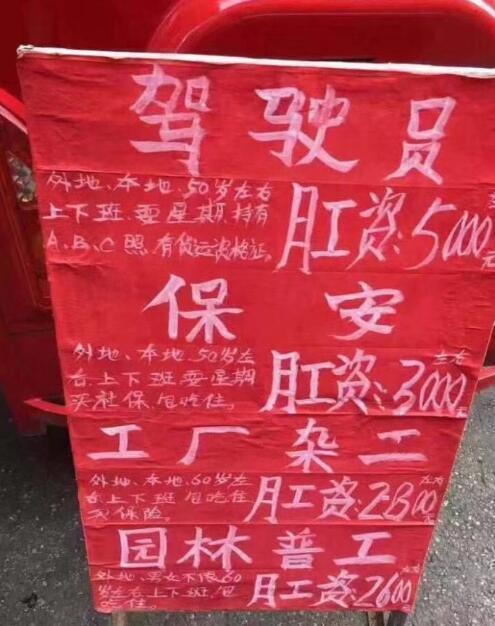 驾驶员
外地、本地、50岁左右
上下班、耍星期、持有
A、B、C照、有货运资格证。
月工资:5000元左右
保安
外地、本地、50岁左
右、上下班、耍星期
买社保、包吃住。
月工资:3000元左右
工厂杂工
外地、本地、60岁左
右、上下班、包吃住
买保险。
月工资:2800元左右
园林普工
外地、男女不限60
岁左右、上下班、包
吃住。
月工资:2600左右